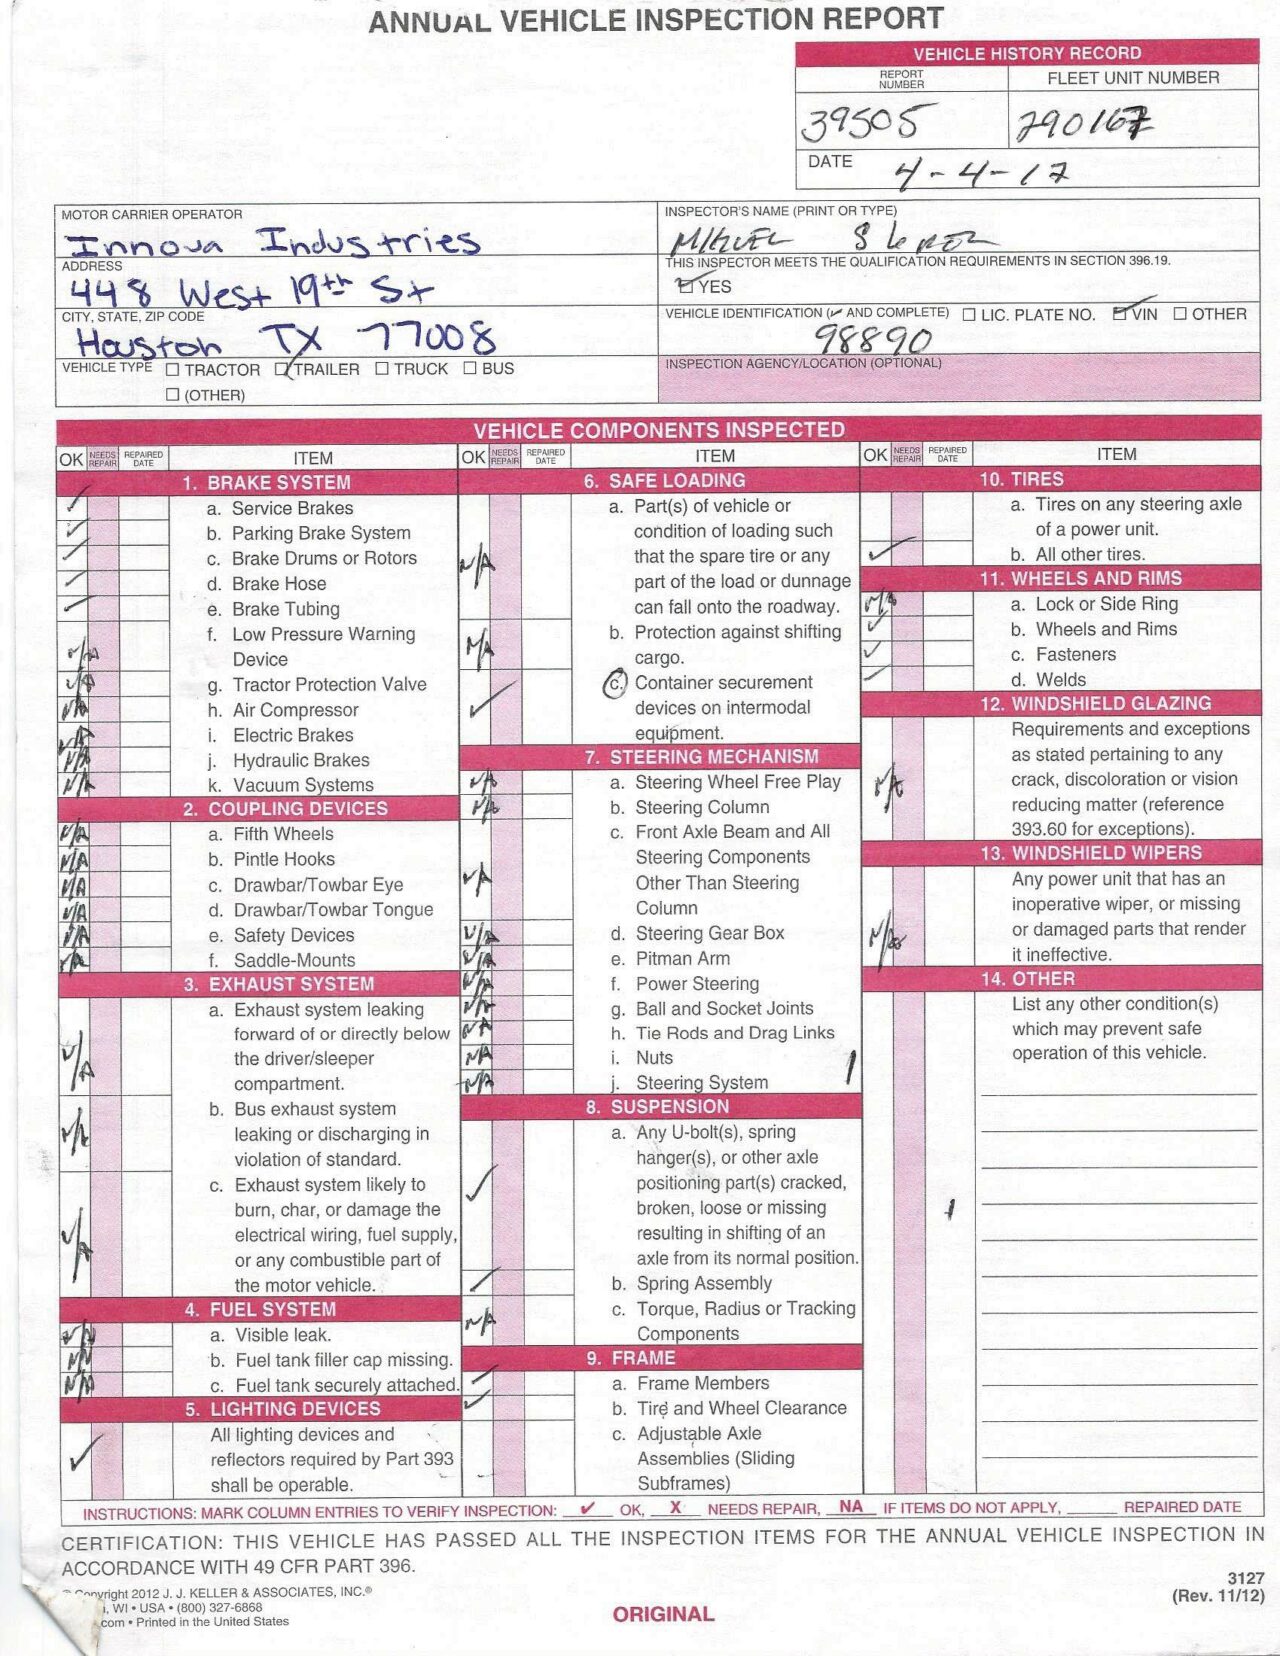 ANNUAL VEHICLE INSPECTION REPORT
VEHICLE HISTORY RECORD
REPORT NUMBER
FLEET UNIT NUMBER
39505
290167
DATE
4-4-17
MOTOR CARRIER OPERATOR
Innova Industries
ADDRESS
448 West 19th St
CITY, STATE, ZIP CODE
Houston TX 77008
VEHICLE TYPE ☐ TRACTOR ☑ TRAILER ☐ TRUCK ☐ BUS
☐ (OTHER)
INSPECTOR'S NAME (PRINT OR TYPE)
THIS INSPECTOR MEETS THE QUALIFICATION REQUIREMENTS IN SECTION 396.19.
☑ YES
VEHICLE IDENTIFICATION (✓ AND COMPLETE) ☐ LIC. PLATE NO. ☑ VIN ☐ OTHER
98890
INSPECTION AGENCY/LOCATION (OPTIONAL)
VEHICLE COMPONENTS INSPECTED
OK NEEDS REPAIR REPAIRED DATE ITEM
1. BRAKE SYSTEM
✓ a. Service Brakes
✓ b. Parking Brake System
✓ c. Brake Drums or Rotors
✓ d. Brake Hose
✓ e. Brake Tubing
N/A f. Low Pressure Warning
Device
N/A g. Tractor Protection Valve
N/A h. Air Compressor
N/A i. Electric Brakes
N/A j. Hydraulic Brakes
N/A k. Vacuum Systems
2. COUPLING DEVICES
N/A a. Fifth Wheels
N/A b. Pintle Hooks
N/A c. Drawbar/Towbar Eye
N/A d. Drawbar/Towbar Tongue
N/A e. Safety Devices
N/A f. Saddle-Mounts
3. EXHAUST SYSTEM
a. Exhaust system leaking
forward of or directly below
N/A the driver/sleeper
compartment.
b. Bus exhaust system
N/A leaking or discharging in
violation of standard.
c. Exhaust system likely to
burn, char, or damage the
N/A electrical wiring, fuel supply,
or any combustible part of
the motor vehicle.
4. FUEL SYSTEM
N/A a. Visible leak.
N/A b. Fuel tank filler cap missing.
N/A c. Fuel tank securely attached.
5. LIGHTING DEVICES
All lighting devices and
✓ reflectors required by Part 393
shall be operable.
OK NEEDS REPAIR REPAIRED DATE ITEM
6. SAFE LOADING
a. Part(s) of vehicle or
condition of loading such
N/A that the spare tire or any
part of the load or dunnage
can fall onto the roadway.
N/A b. Protection against shifting
cargo.
✓ c. Container securement
devices on intermodal
equipment.
7. STEERING MECHANISM
N/A a. Steering Wheel Free Play
N/A b. Steering Column
c. Front Axle Beam and All
Steering Components
N/A Other Than Steering
Column
N/A d. Steering Gear Box
N/A e. Pitman Arm
N/A f. Power Steering
N/A g. Ball and Socket Joints
N/A h. Tie Rods and Drag Links
N/A i. Nuts
N/A j. Steering System
8. SUSPENSION
a. Any U-bolt(s), spring
hanger(s), or other axle
✓ positioning part(s) cracked,
broken, loose or missing
resulting in shifting of an
axle from its normal position.
✓ b. Spring Assembly
N/A c. Torque, Radius or Tracking
Components
9. FRAME
✓ a. Frame Members
✓ b. Tire and Wheel Clearance
c. Adjustable Axle
Assemblies (Sliding
Subframes)
OK NEEDS REPAIR REPAIRED DATE ITEM
10. TIRES
a. Tires on any steering axle
of a power unit.
✓ b. All other tires.
11. WHEELS AND RIMS
N/A a. Lock or Side Ring
✓ b. Wheels and Rims
✓ c. Fasteners
✓ d. Welds
12. WINDSHIELD GLAZING
Requirements and exceptions
as stated pertaining to any
N/A crack, discoloration or vision
reducing matter (reference
393.60 for exceptions).
13. WINDSHIELD WIPERS
Any power unit that has an
inoperative wiper, or missing
N/A or damaged parts that render
it ineffective.
14. OTHER
List any other condition(s)
which may prevent safe
operation of this vehicle.
INSTRUCTIONS: MARK COLUMN ENTRIES TO VERIFY INSPECTION: ✓ OK, X NEEDS REPAIR, NA IF ITEMS DO NOT APPLY, ______ REPAIRED DATE
CERTIFICATION: THIS VEHICLE HAS PASSED ALL THE INSPECTION ITEMS FOR THE ANNUAL VEHICLE INSPECTION IN
ACCORDANCE WITH 49 CFR PART 396.
Copyright 2012 J. J. KELLER & ASSOCIATES, INC.®
WI • USA • (800) 327-6868
.com • Printed in the United States
ORIGINAL
3127
(Rev. 11/12)